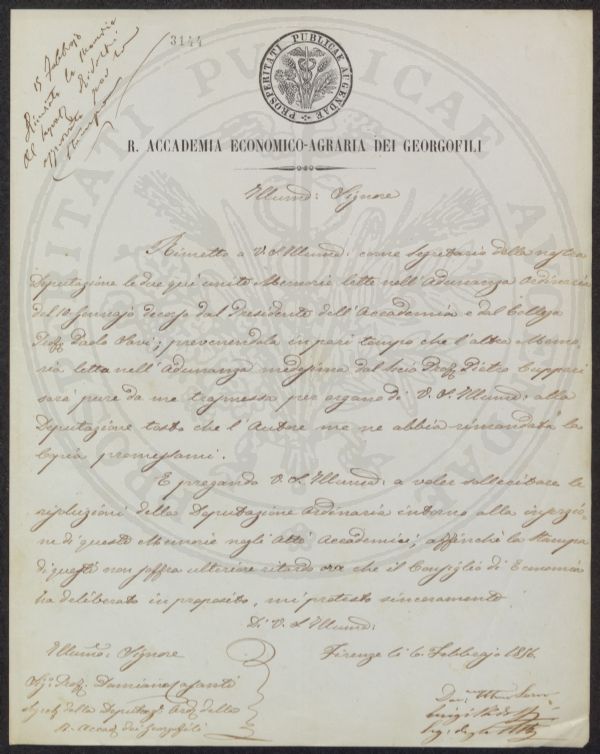 3144
15 Febbrajo
Rimesse le Memorie
al
PROSPERITATI PUBLICAE AUGENDAE
R. ACCADEMIA ECONOMICO-AGRARIA DEI GEORGOFILI
Illumo: Signore
Rimetto a V. S. Illuma: come Segretario della nostra
Deputazione le due quì unite Memorie lette nell'Adunanza Ordinaria
del 10 Gennajo decorso dal Presidente dell'Accademia e dal Collega
Profr. Paolo Savi; prevenendola in pari tempo che l'altra Memo
ria letta nell'Adunanza medesima dal Socio Profr. Pietro Cuppari
sarà pure da me trasmessa per organo di V. S. Illuma: alla
Deputazione tosto che l'Autore me ne abbia rimandata la
Copia promessami.
E pregando V. S. Illuma: a voler sollecitare le
risoluzioni della Deputazione Ordinaria intorno alla inserzio=
ne di queste Memorie negli Atti Accademici; affinchè la Stampa
di questi non soffra ulteriore ritardo ora che il Consiglio di Economia
ha deliberato in proposito, mi protesto sinceramente
Di V. S. Illuma:
Illumo: Signore
Firenze li 6. Febbrajo 1856.
Sigr. Profr. Damiano Casanti
Segrio della Deputaze Orda della
R. Accad. dei Georgofili